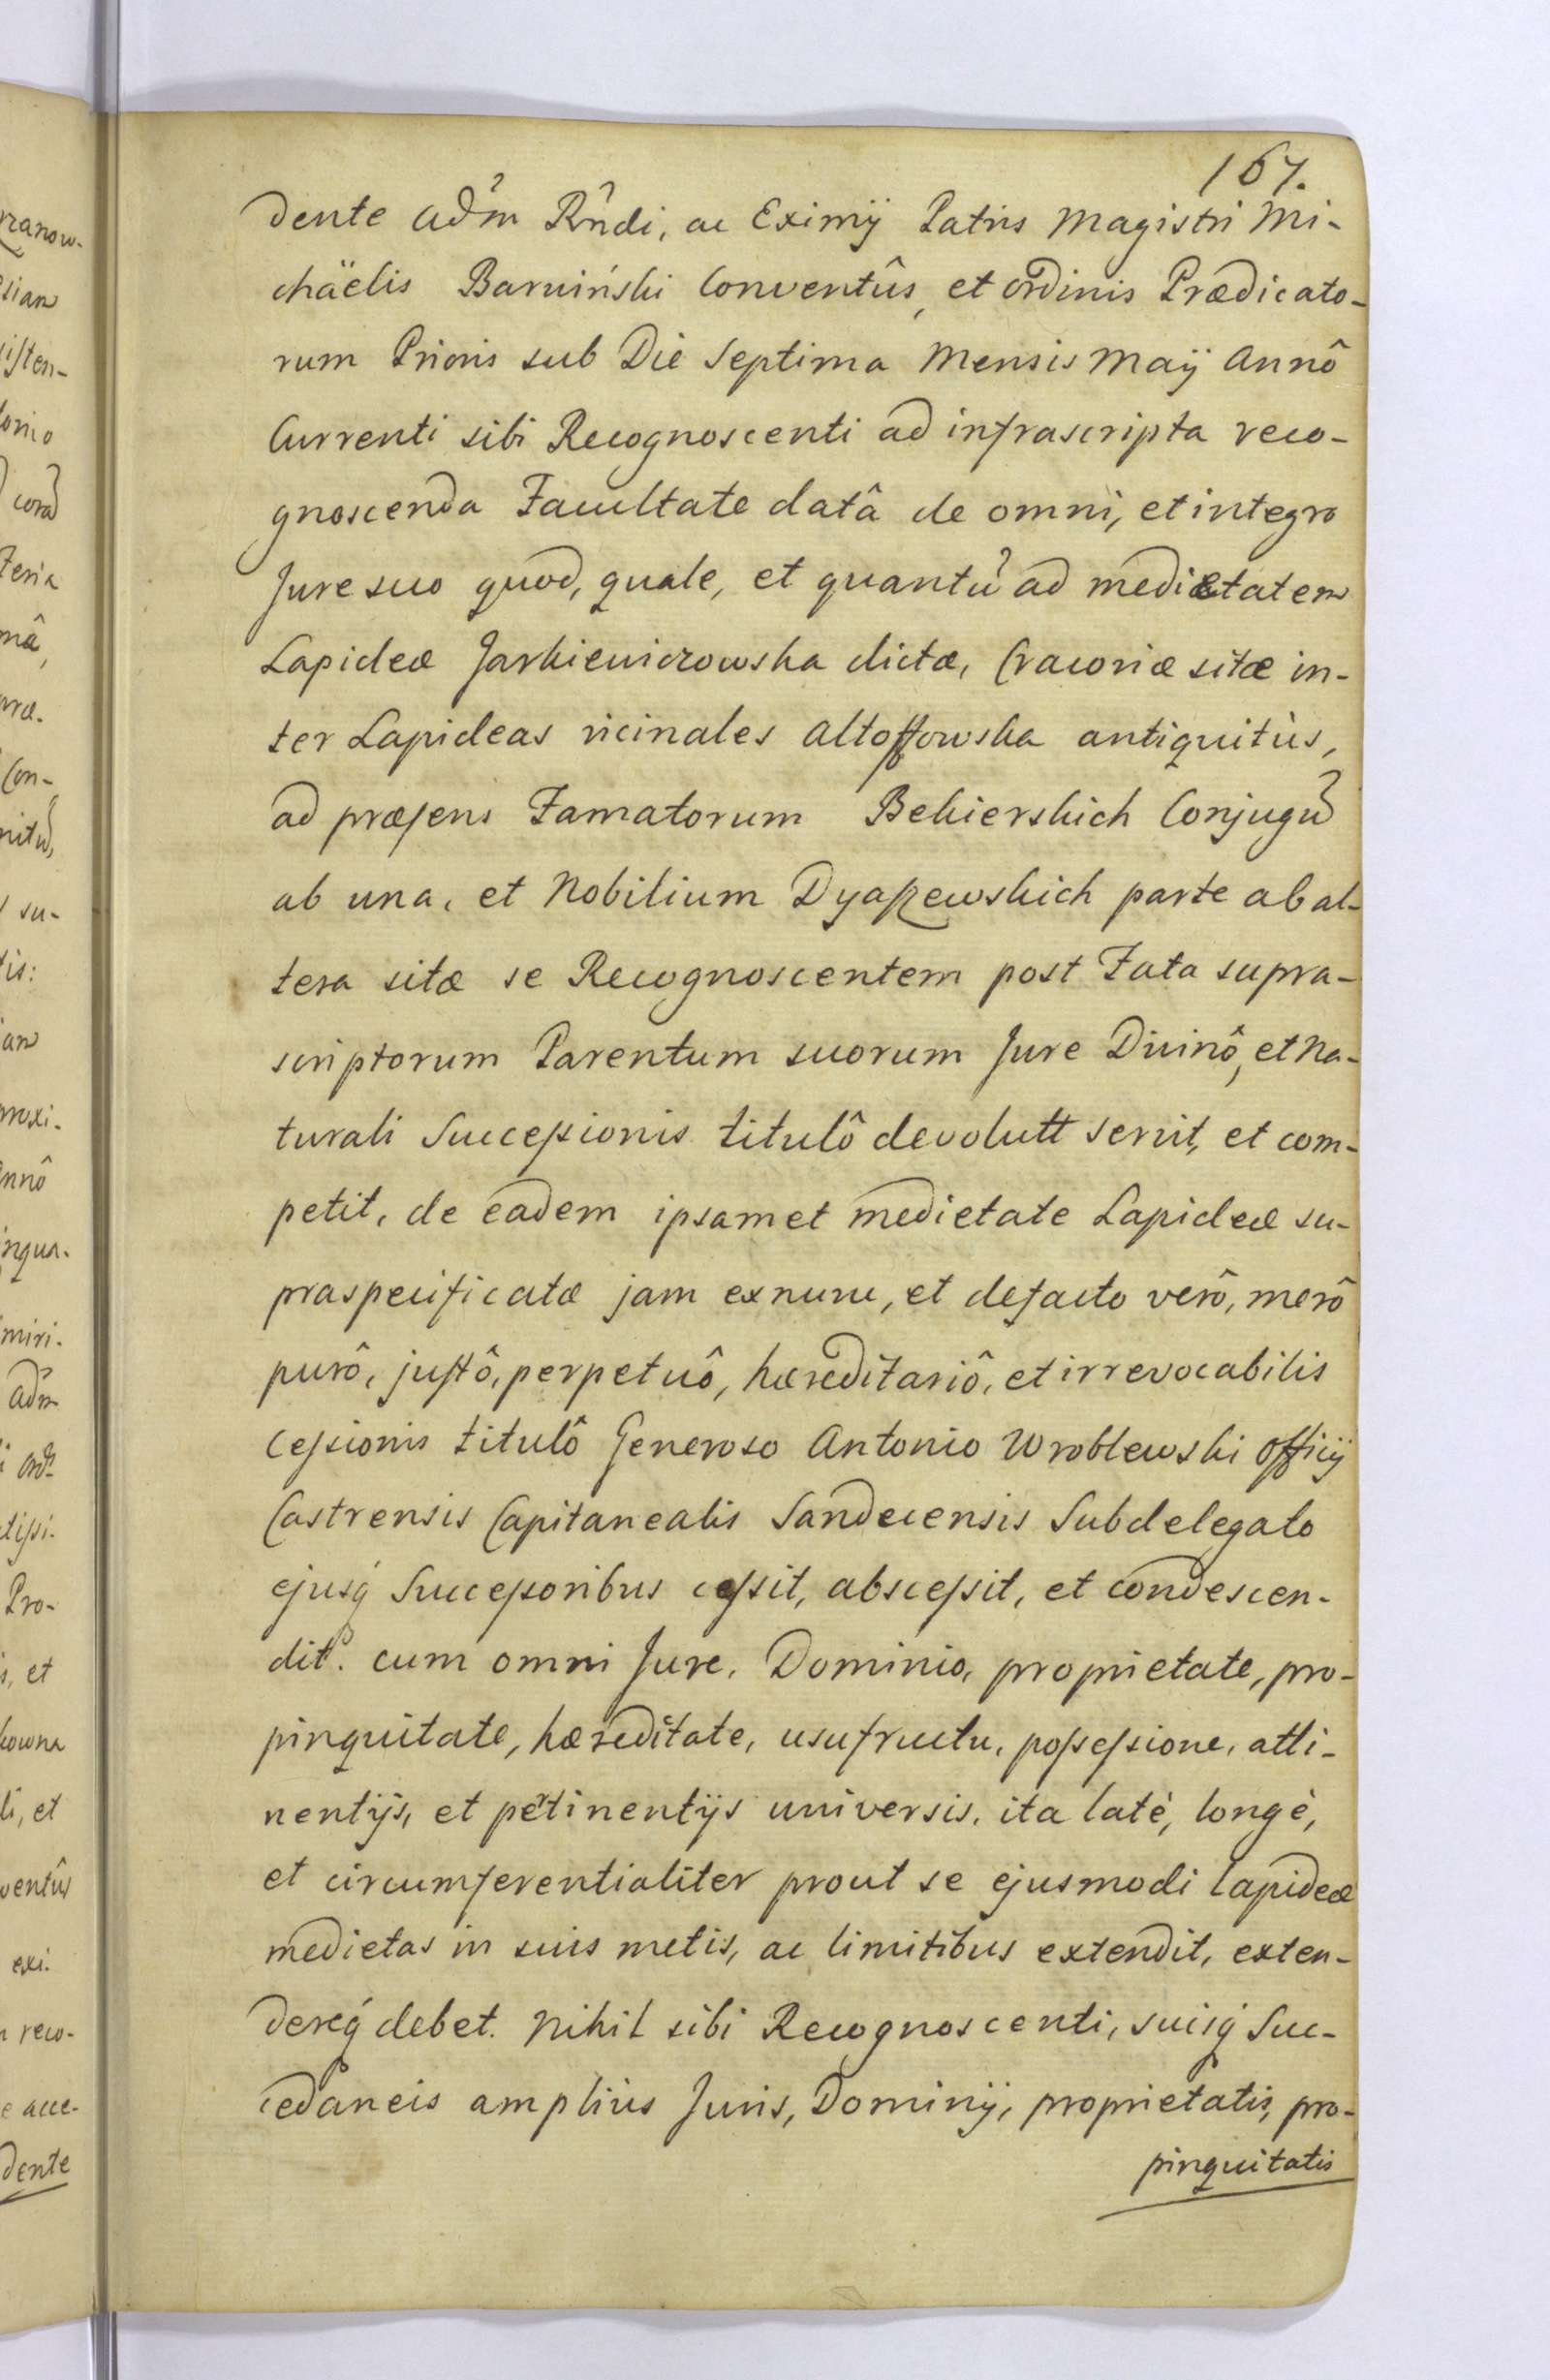 167.
dente adm̃ Rñdi, ac Eximij Patris Magistri Mi-
chäelis Barwiński Conventûs, et ordinis Prædicato-
rum Prioris sub Die Septima Mensis Maij Annô
Currenti sibi Recognoscenti ad infrascripta reco-
gnoscenda Facultate datâ de omni, et integro
Jure suo quod, quale, et quantũ ad medietatem
Lapideæ Jarkiewiczowska dictæ, Cracoviæ sitæ in-
ter Lapideas vicinales Altoffowska antiquitùs,
ad præsens Famatorum Bekierskich Conjugũ
ab una, et Nobilium Dyaszewskich parte ab al-
tera sitæ se Recognoscentem post Fata supra-
scriptorum Parentum suorum Jure Divinô, et Na-
turali Successionis titulô devolutt servit, et com-
petit, de eadem ipsamet medietate Lapideæ su-
praspecificatæ jam exnunc, et defacto verô, merô
purô, justô, perpetuô, hæreditariô, et irrevocabilis
Cessionis titulô Generoso Antonio Wroblewski Officij
Castrensis Capitanealis Sandecensis Subdelegato
ejusq́ Successoribus cessit, abscessit, et condescen-
dit. cum omni Jure, Dominio, proprietate, pro-
pinquitate, hæreditate, usufructu, possessione, atti-
nentijs, et ptinentijs universis, ita latè, longè,
et circumferentialiter prout se ejusmodi Lapideæ
medietas in suis metis, ac limitibus extendit, exten-
dereq́ debet. Nihil sibi Recognoscenti, suisq́ Suc-
cedaneis amplius Juris, Dominij, proprietatis, pro-
pinquitatis
rzanow-
sian
isten-
tonio
corã
teria
mâ,
præ.
Con-
nitũ,
su-
tis:
ian
proxi.
Annô
inqua.
miri.
adm̃
tissi.
Pro-
s, et
kowna
li, et
ventûs
exi.
reco-
e acce-
dente